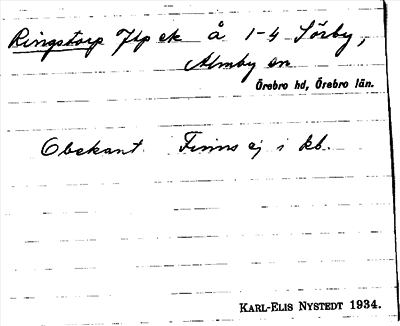 Ringstorp Jtp ek å 1-4 Sörby,
Almby sn
Örebro hd, Örebro län.
Obekant. Finns ej i kb.
KARL-ELIS NYSTEDT 1934.